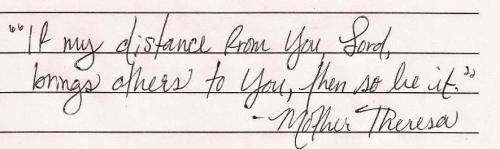 "If my distance from You, Lord,
brings others to You, then so be it."
- Mother Theresa